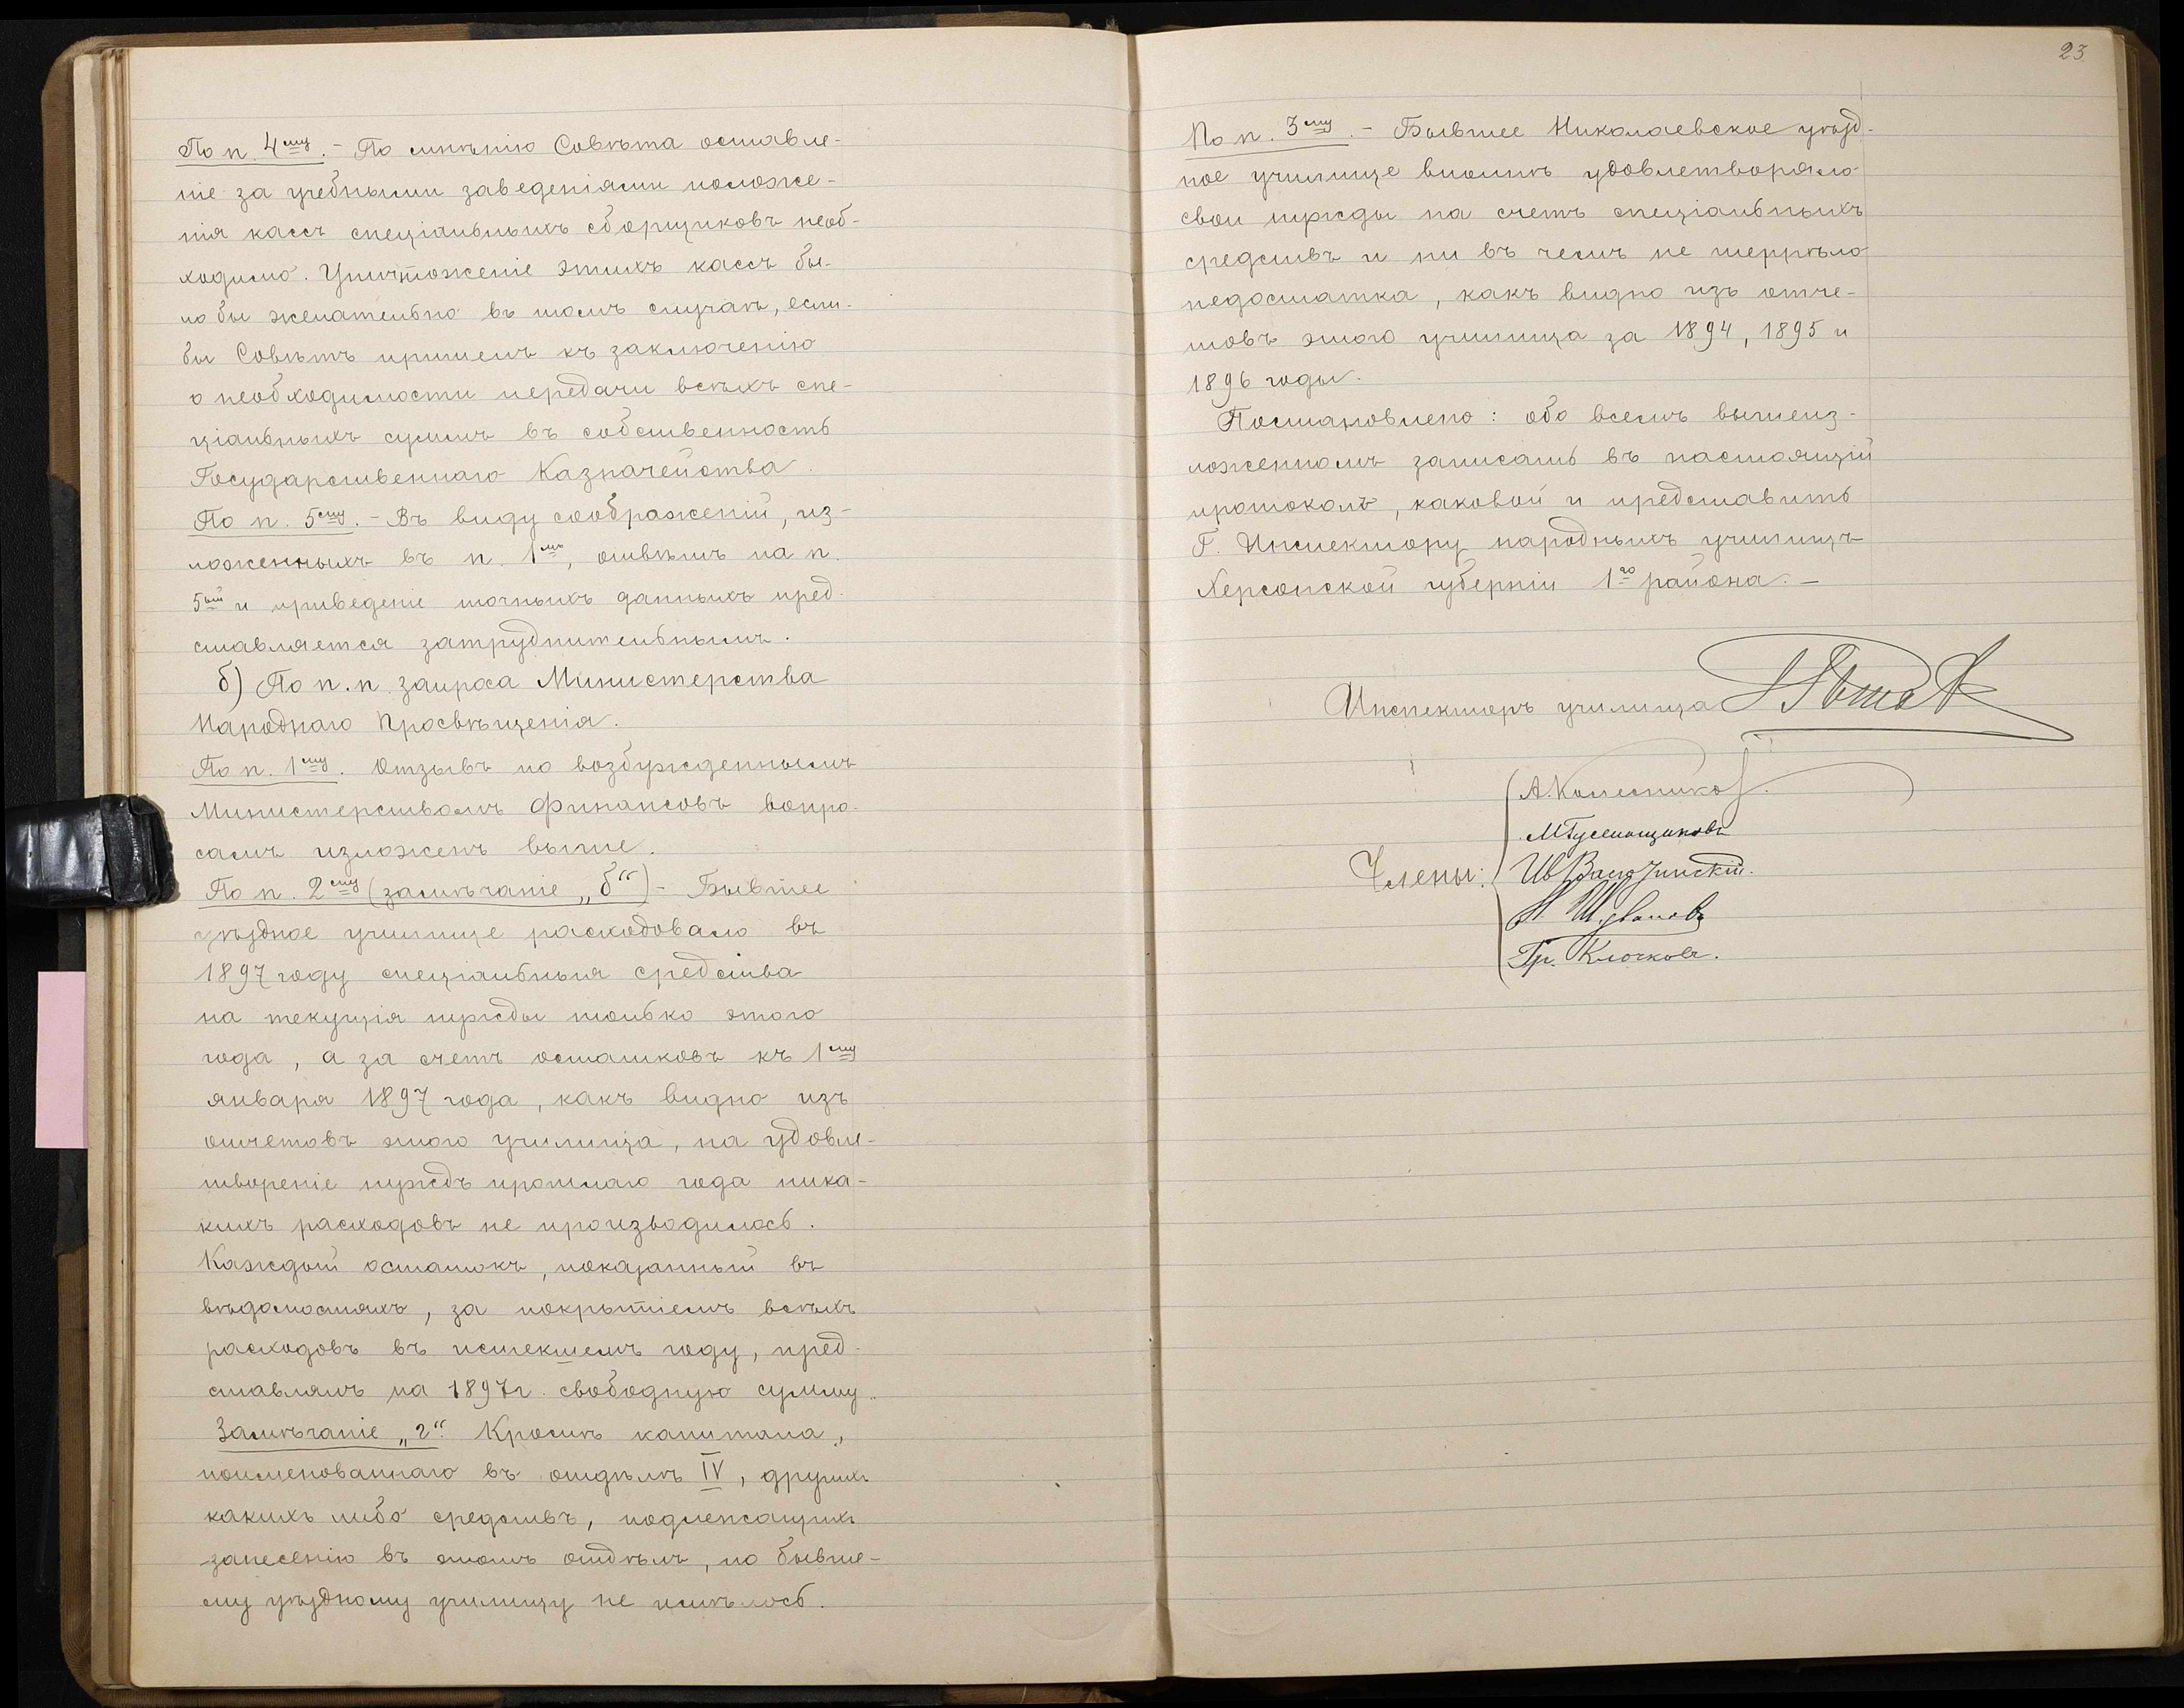 По п. 4му. - По мнѣнію Совѣта оставле-
ніе за учебными заведеніями положе-
нія кассъ спеціальныхъ сборщиковъ необ-
ходимо. Уничтоженіе этихъ кассъ бы-
ло бы желательно въ томъ случаѣ, если-
бы Совѣтъ пришелъ къ заключенію
о необходимости передачи всѣхъ спе-
ціальныхъ суммъ въ собственность
Государственнаго Казначейства.
По п. 5му. - Въ виду соображеній, из-
ложенныхъ въ п. 1мъ, отвѣтъ на п.
5ый и приведеніе точныхъ данныхъ пред-
ставляется затруднительнымъ.
б) По п.п. запроса Министерства
Народнаго Просвѣщенія.
По п. 1му. Отзывъ по возбужденнымъ
Министерствомъ Финансовъ вопро-
самъ изложенъ выше.
По п. 2му (замѣчаніе „б“) - Бывшее
уѣздное училище расходовало въ
1897 году спеціальныя средства
на текущія нужды только этого
года, а за счетъ остатковъ къ 1му
января 1897 года, какъ видно изъ
отчетовъ этого училища, на удовле-
твореніе нуждъ прошлаго года ника-
кихъ расходовъ не производилось.
Каждый остатокъ, показанный въ
вѣдомостяхъ, за покрытіемъ всѣхъ
расходовъ въ истекшемъ году, пред-
ставлялъ на 1897 г. свободную сумму.
Замѣчаніе „г“. Кромѣ капитала,
поименованнаго въ отдѣлѣ IV, другихъ
какихъ либо средствъ, подлежащихъ
занесенію въ этомъ отдѣлѣ, по бывше-
му уѣздному училищу не имѣлось.
23
По п. 3му. - Бывшее Николаевское уѣзд-
ное училище вполнѣ удовлетворяло
свои нужды на счетъ спеціальныхъ
средствъ и ни въ чемъ не терпѣло
недостатка, какъ видно изъ отче-
товъ этого училища за 1894, 1895 и
1896 годы.
Постановлено: обо всемъ вышеиз-
ложенномъ записать въ настоящій
протоколъ, каковой и представить
Г. Инспектору народныхъ училищъ
Херсонской губерніи 1го района. -
Инспекторъ училища
А. Колесников
Члены:
Гр. Клочковъ.